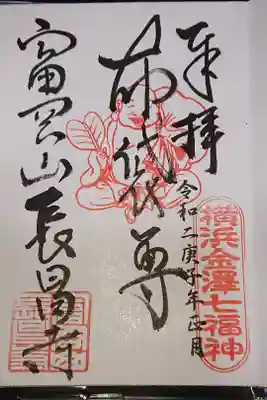 奉拝
令和二庚子年正月
横浜金澤七福神
布袋尊
富岡山長昌寺